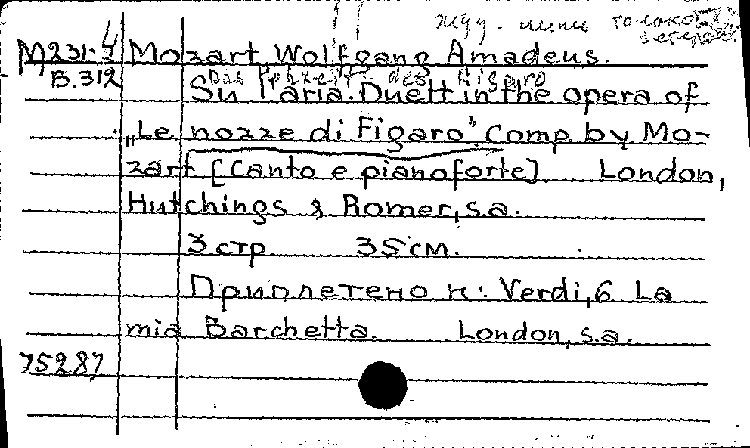 4
M231-3 Mozart, Wolfgang Amadeus.
B.312
Su l'aria. Duett in the opera of
„Le nozze di Figaro". Comp. by Mo-
zart [Canto e pianoforte] London,
Hutchings & Romer, s.a.
3 стр. 35 см.
Приплетено к: Verdi, G La
mia Barchetta. London, s.a.
75287